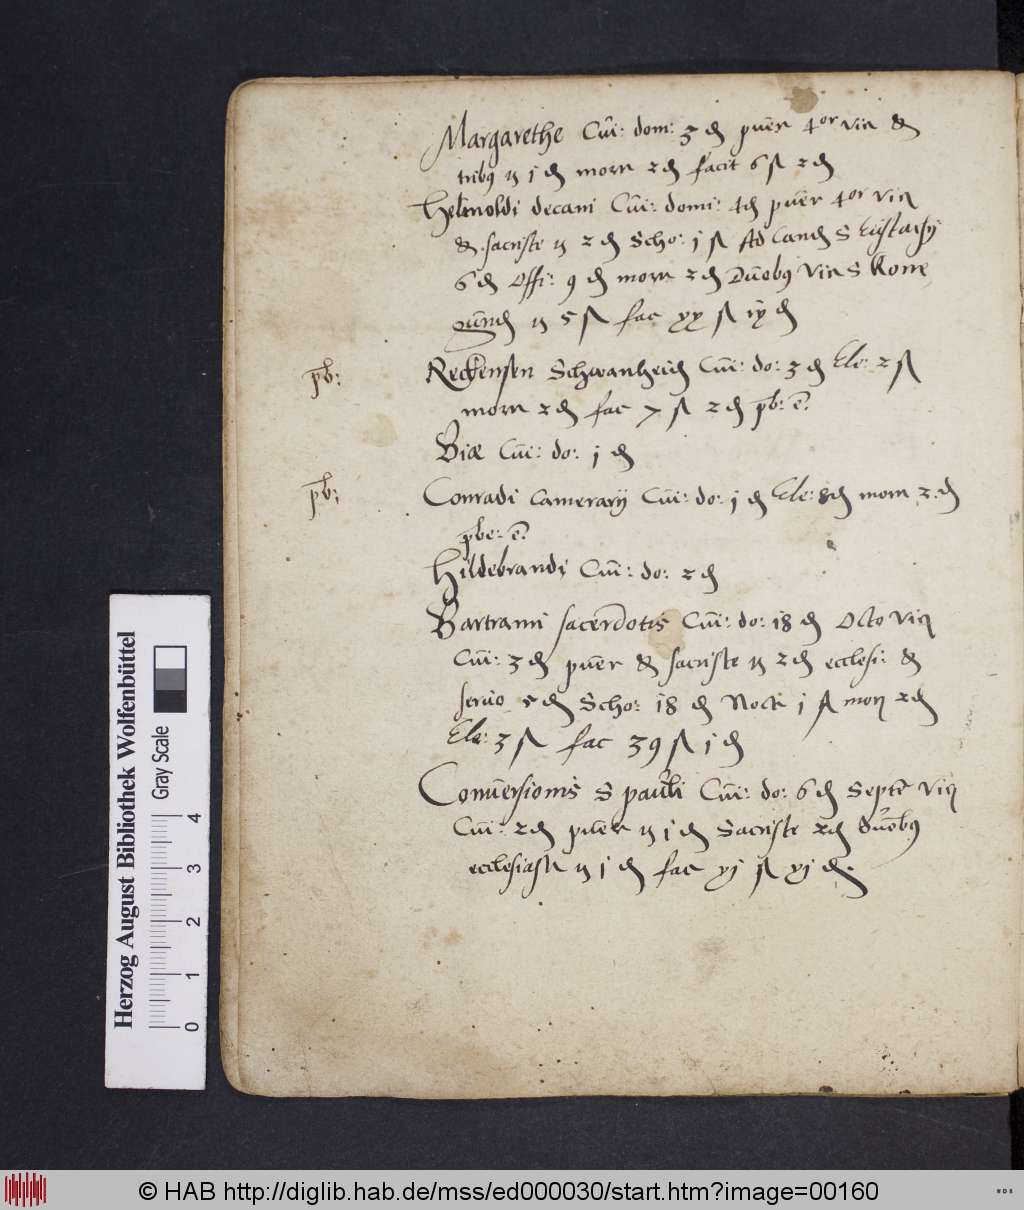 Margarethe Cui: dom: 3 ₰ puer 4or vic &
tribus ij 1 ₰ morn 2 ₰ facit 6 ß 2 ₰
Helmoldi decani Cui: domi: 4 ₰ puer 4or vic
& sacriste ij 2 ₰ Scho: j ß Ad Cand S Eustachij
6 ₰ Offi: 9 ₰ morn 2 ₰ Duobus Vic S Kone
gund ij 5 ß fac xx ß ix ₰
pb: Reckensen Schwanheid Cui: do: 3 ₰ Ele: 2 ß
morn 2 ₰ fac 7 ß 2 ₰ pb: e:
Biae Cui: do: j ₰
pb: Conradi Camerarij Cui: do: j ₰ Ele: 8 ₰ morn 2 ₰
pbe: e:
Hildebrandi Cui: do: 2 ₰
Bartrami sacerdotis Cui: do: 18 ₰ Octo Vic
Cui: 3 ₰ puer & sacriste ij 2 ₰ ecclesi: &
seruo 5 ₰ Scho: 18 ₰ Noct j ß morn 2 ₰
Ele: 3 ß fac 39 ß j ₰
Conuersionis S pauli Cui: do: 6 ₰ Septe Vic
Cui: 2 ₰ puer ij j ₰ Sacriste 2 ₰ duobus
ecclesiast ij j ₰ fac xj ß xj ₰.
Herzog August Bibliothek Wolfenbüttel
Gray Scale
0 1 2 3 4
© HAB http://diglib.hab.de/mss/ed000030/start.htm?image=00160